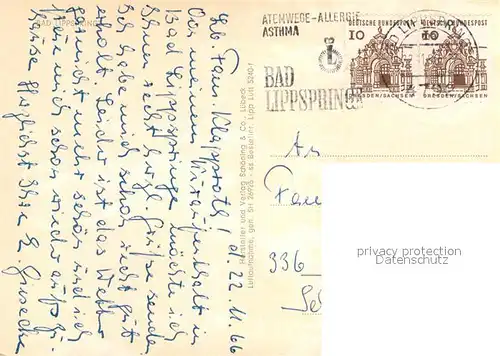 BAD LIPPSPRINGE
d. 22. 11. 66
Geb. Fam. Klapproth!
Von meinem Kuraufenthalt in
Bad Lippspringe möchte ich
Ihnen recht herzl. Grüße senden
Ich habe mich schon recht gut
erholt. Leider ist das Wetter
nicht mehr schön und ich
freue mich schon wieder auf zu
Hause. Herzlichst Ihre E. Giesecke
Hersteller und Verlag Schöning & Co., Lübeck
ATEMWEGE-ALLERGIE
ASTHMA
BAD
LIPPSPRINGE
DEUTSCHE BUNDESPOST
10
DRESDEN/SACHSEN
DEUTSCHE BUNDESPOST
10
DRESDEN/SACHSEN
An
Fam
336
privacy protection
Datenschutz